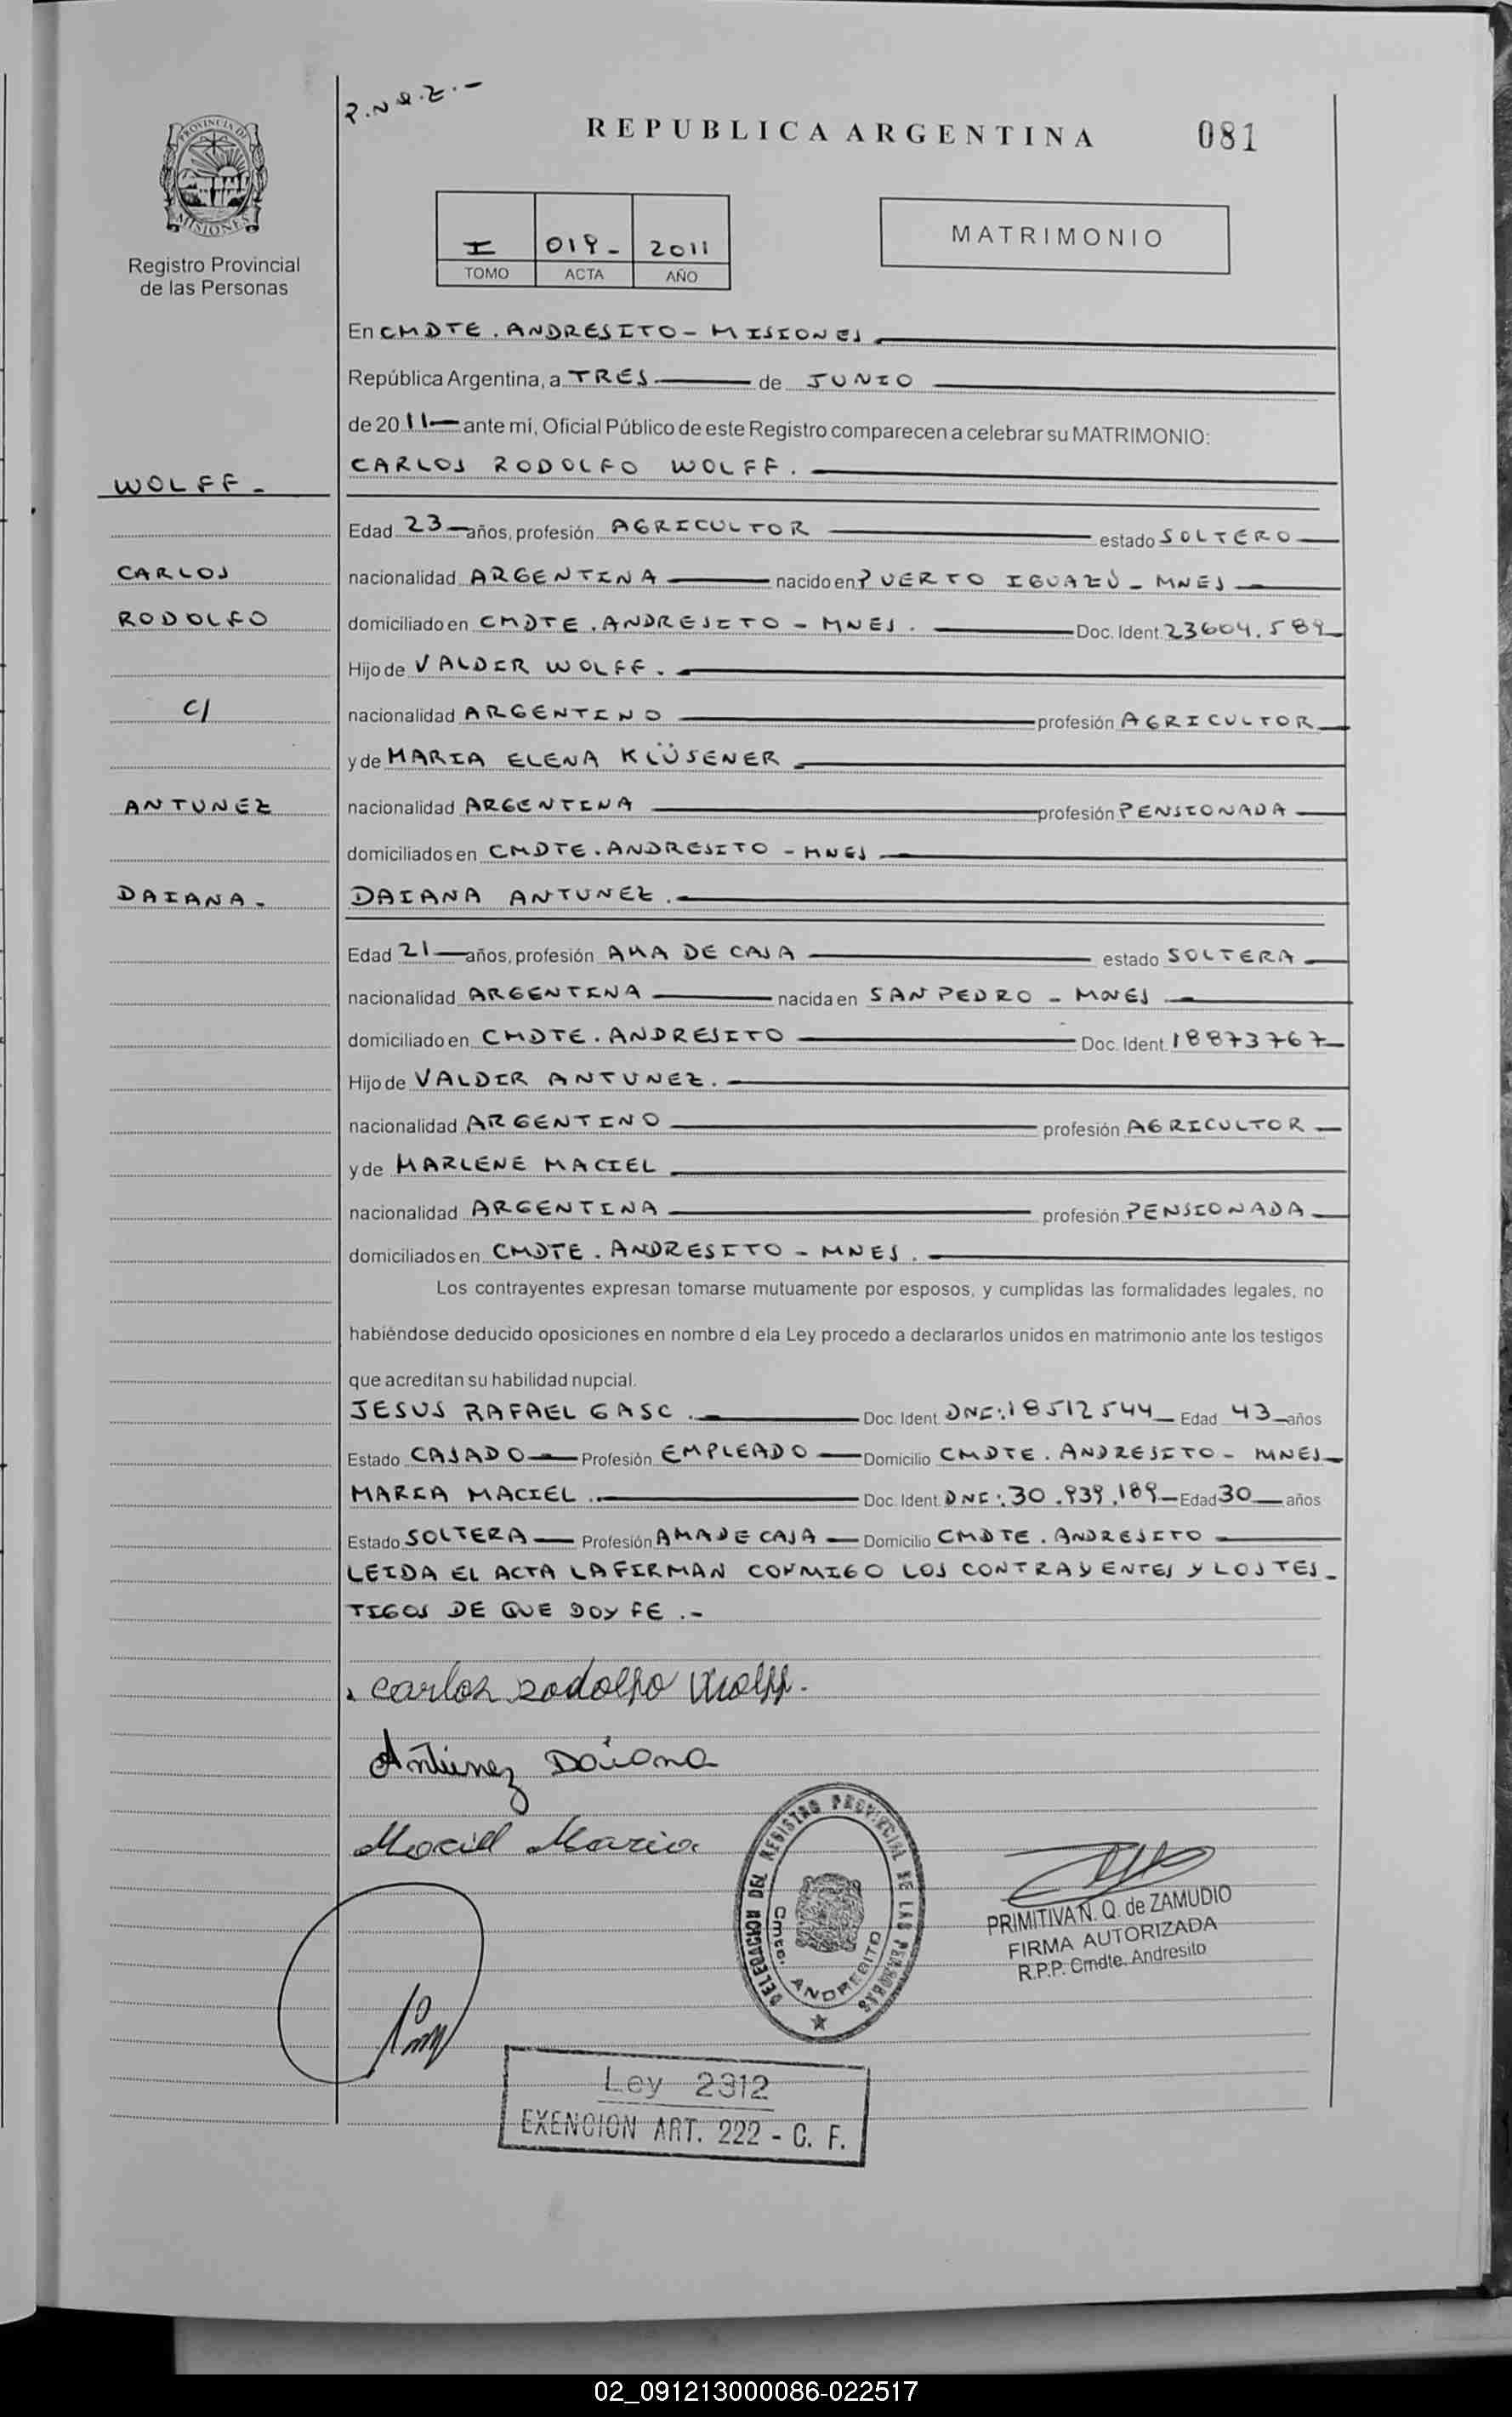 P.N.Q.Z.-
REPUBLICA ARGENTINA
081
PROVINCIA DE
MISIONES
Registro Provincial
de las Personas
I 019- 2011
TOMO ACTA AÑO
MATRIMONIO
En CMDTE. ANDRESITO - MISIONES
República Argentina, a TRES de JUNIO
de 2011 ante mí, Oficial Público de este Registro comparecen a celebrar su MATRIMONIO:
CARLOS RODOLFO WOLFF.
WOLFF -
Edad 23 años, profesión AGRICULTOR estado SOLTERO
CARLOS
nacionalidad ARGENTINA nacido en PUERTO IGUAZÚ - MNES
RODOLFO
domiciliado en CMDTE. ANDRESITO - MNES. Doc. Ident. 23604.589
Hijo de VALDIR WOLFF.
C/
nacionalidad ARGENTINO profesión AGRICULTOR
y de MARIA ELENA KLÜSENER
ANTUNEZ
nacionalidad ARGENTINA profesión PENSIONADA
domiciliados en CMDTE. ANDRESITO - MNES
DAIANA -
DAIANA ANTUNEZ.
Edad 21 años, profesión AMA DE CASA estado SOLTERA
nacionalidad ARGENTINA nacida en SAN PEDRO - MNES
domiciliado en CMDTE. ANDRESITO Doc. Ident. 18873767
Hijo de VALDIR ANTUNEZ.
nacionalidad ARGENTINO profesión AGRICULTOR
y de MARLENE MACIEL
nacionalidad ARGENTINA profesión PENSIONADA
domiciliados en CMDTE. ANDRESITO - MNES.
Los contrayentes expresan tomarse mutuamente por esposos, y cumplidas las formalidades legales, no
habiéndose deducido oposiciones en nombre d ela Ley procedo a declararlos unidos en matrimonio ante los testigos
que acreditan su habilidad nupcial.
JESUS RAFAEL GASC. Doc. Ident. DNI: 18512544 Edad 43 años
Estado CASADO Profesión EMPLEADO Domicilio CMDTE. ANDRESITO - MNES
MARIA MACIEL. Doc. Ident. DNI: 30.939.189 Edad 30 años
Estado SOLTERA Profesión AMA DE CASA Domicilio CMDTE. ANDRESITO
LEIDA EL ACTA LA FIRMAN CONMIGO LOS CONTRAYENTES Y LOS TES-
TIGOS DE QUE DOY FE.-
Carlos Rodolfo Wolff.
Antunez Daiana
Maciel Maria
DELEGACION DEL REGISTRO PROVINCIAL DE LAS PERSONAS
Cmte. ANDRESITO
PRIMITIVA N. Q. de ZAMUDIO
FIRMA AUTORIZADA
R.P.P. Cmdte. Andresito
Ley 2312
EXENCION ART. 222 - C. F.
02_091213000086-022517